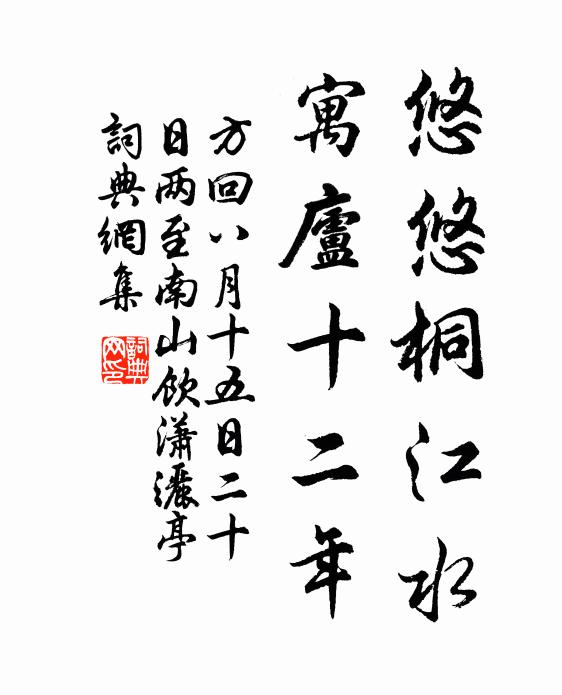 悠悠桐江水
寓廬十二年
方回八月十五日二十
日两至南山飲瀟灑亭
詞典網集
詞典網印